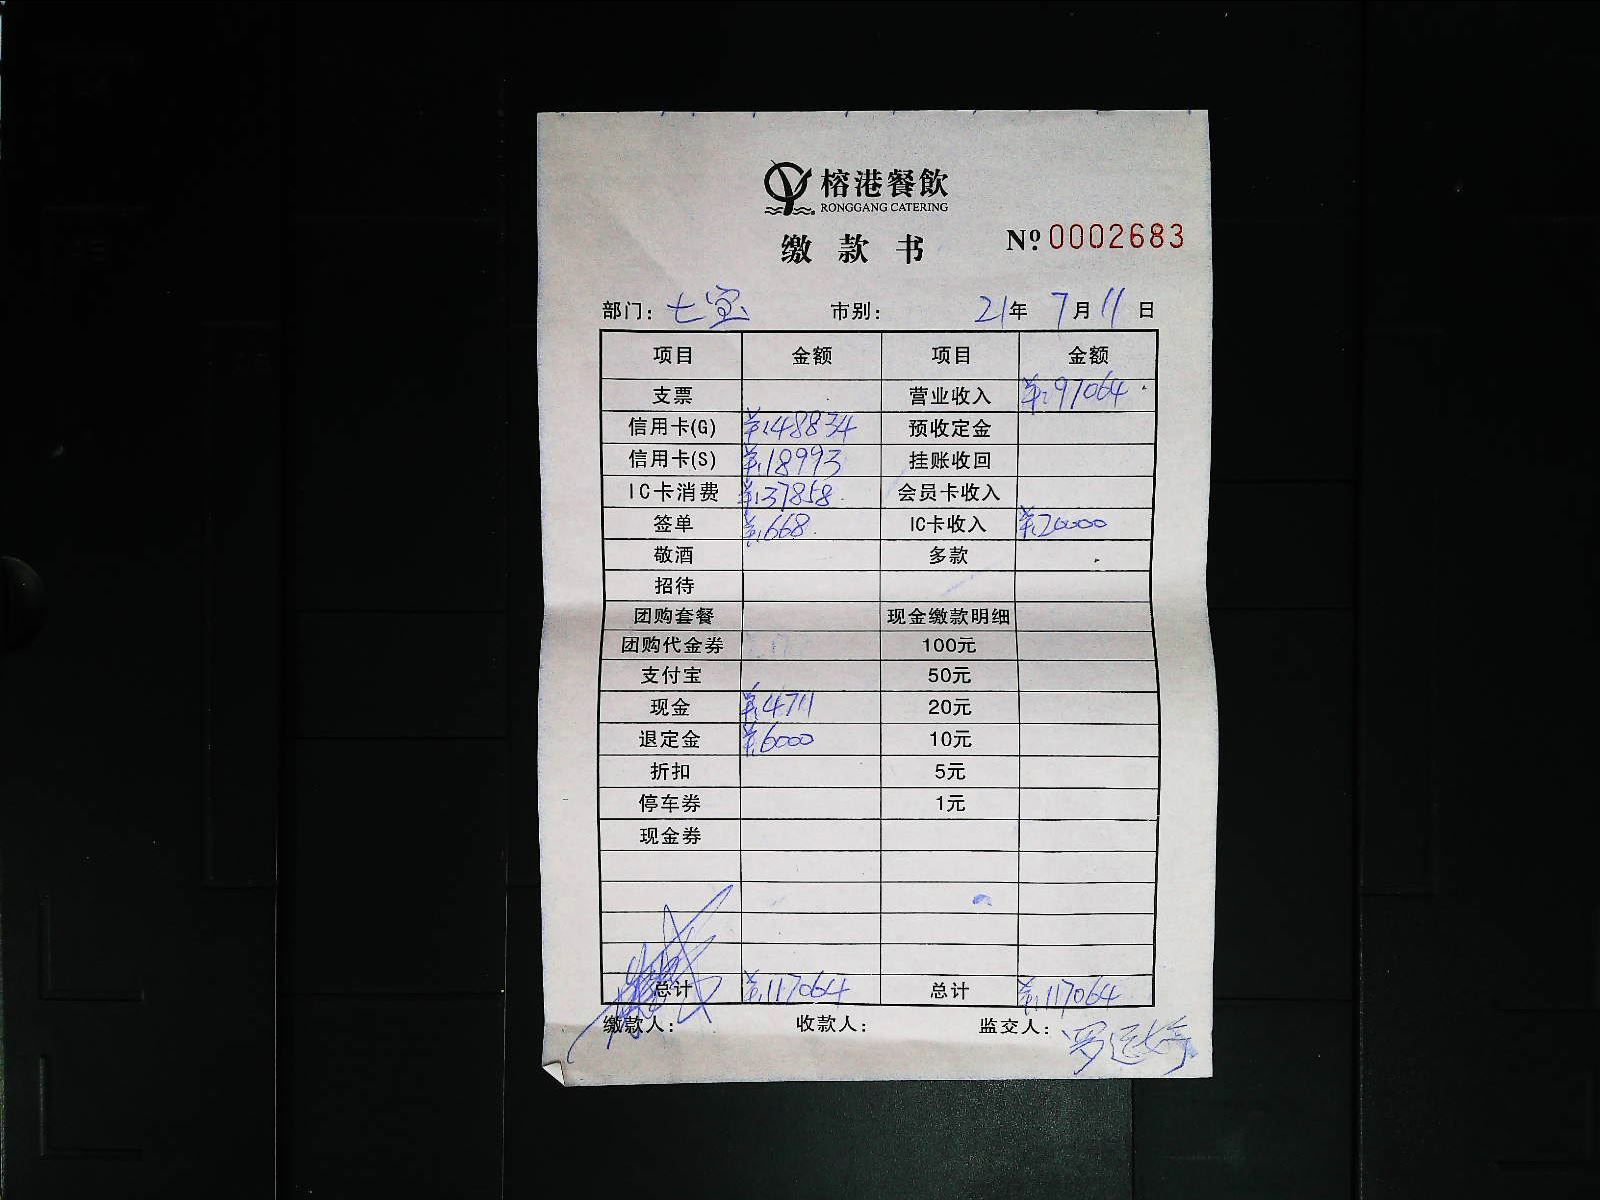 榕港餐飲
RONGGANG CATERING
缴款书 Nº 0002683
部门: 七宝 市别: 21年 7月 11日
项目 金额 项目 金额
支票 营业收入 ¥:97064
信用卡(G) ¥:48834 预收定金
信用卡(S) ¥:18993 挂账收回
IC卡消费 ¥:37858 会员卡收入
签单 ¥:668 IC卡收入 ¥:20000
敬酒 多款
招待
团购套餐 现金缴款明细
团购代金券 100元
支付宝 50元
现金 ¥:4711 20元
退定金 ¥:6000 10元
折扣 5元
停车券 1元
现金券
总计 ¥:117064 总计 ¥:117064
缴款人: 收款人: 监交人: